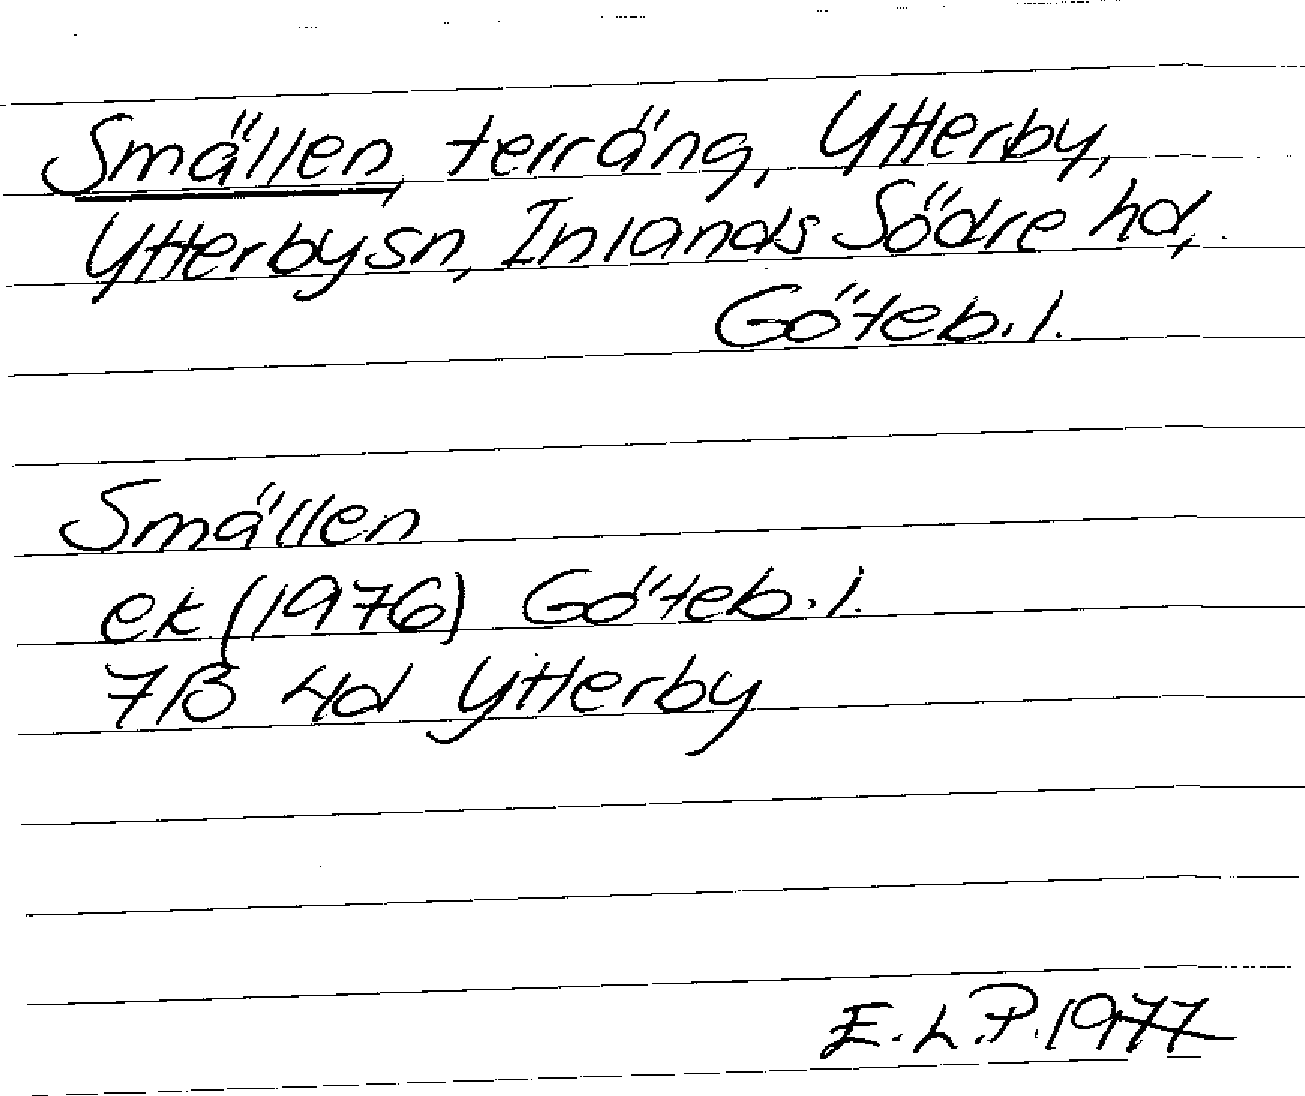 Smällen, terräng, Ytterby,
Ytterby sn, Inlands Södre hd,
Göteb. l.
Smällen
ek (1976) Göteb. l.
7B 4d Ytterby
E. L. P. 1977